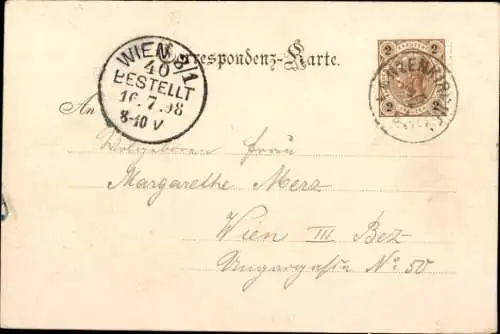 Correspondenz-Karte.
WIEN 9/1
40
BESTELLT
16.7.98
8-10 V
2 2
2 2
An
Wolgeboren Frau
Margarethe Merz
Wien III Bez
Ungargasse No. 50